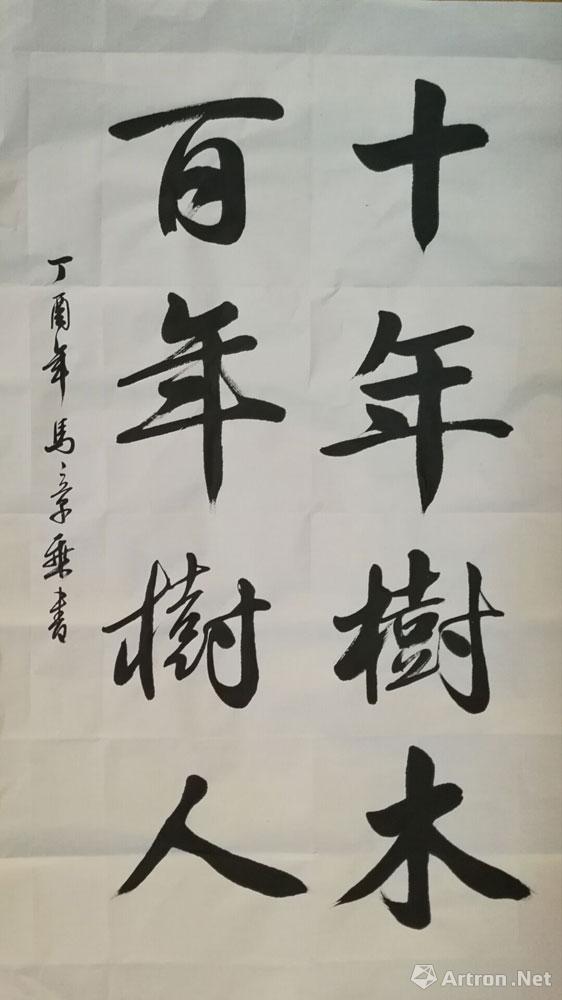 十年樹木
百年樹人
丁酉年馬章乘書
Artron.Net